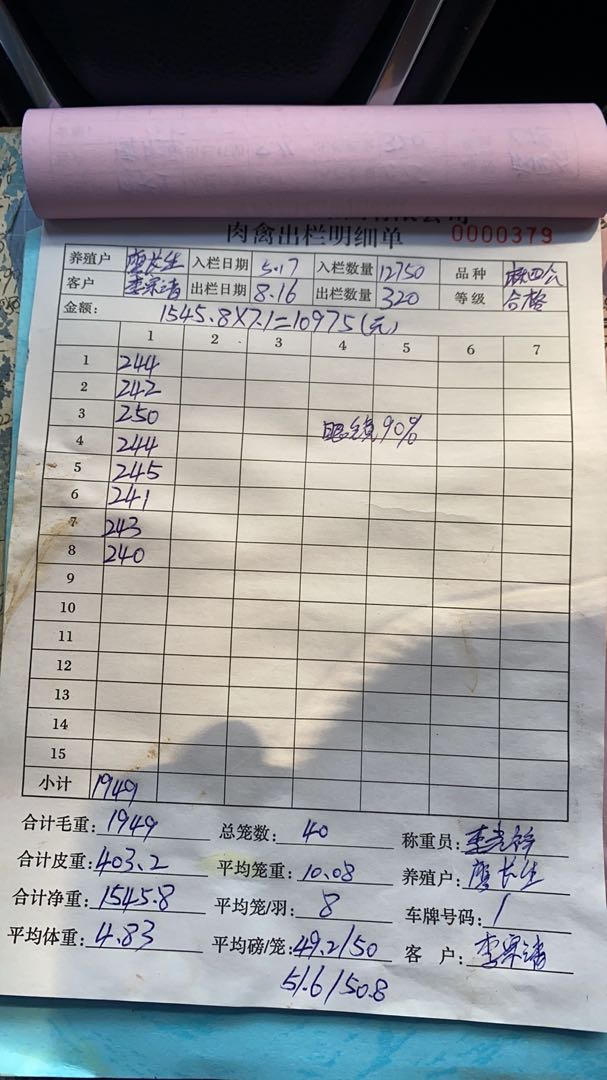 肉禽出栏明细单 0000379
养殖户 廖长生 入栏日期 5.17 入栏数量 12750 品种
客户 出栏日期 8.16 出栏数量 320 等级 合格
金额: 1545.8×7.1=10975(元)
1 2 3 4 5 6 7
1 244
2 242
3 250
4 244
5 245
6 241
7 243
8 240
90%
9
10
11
12
13
14
15
小计 1949
合计毛重: 1949 总笼数: 40 称重员:
合计皮重: 403.2 平均笼重: 10.08 养殖户: 廖长生
合计净重: 1545.8 平均笼/羽: 8 车牌号码: /
平均体重: 4.83 平均磅/笼: 49.2/50 客 户:
51.6/50.8